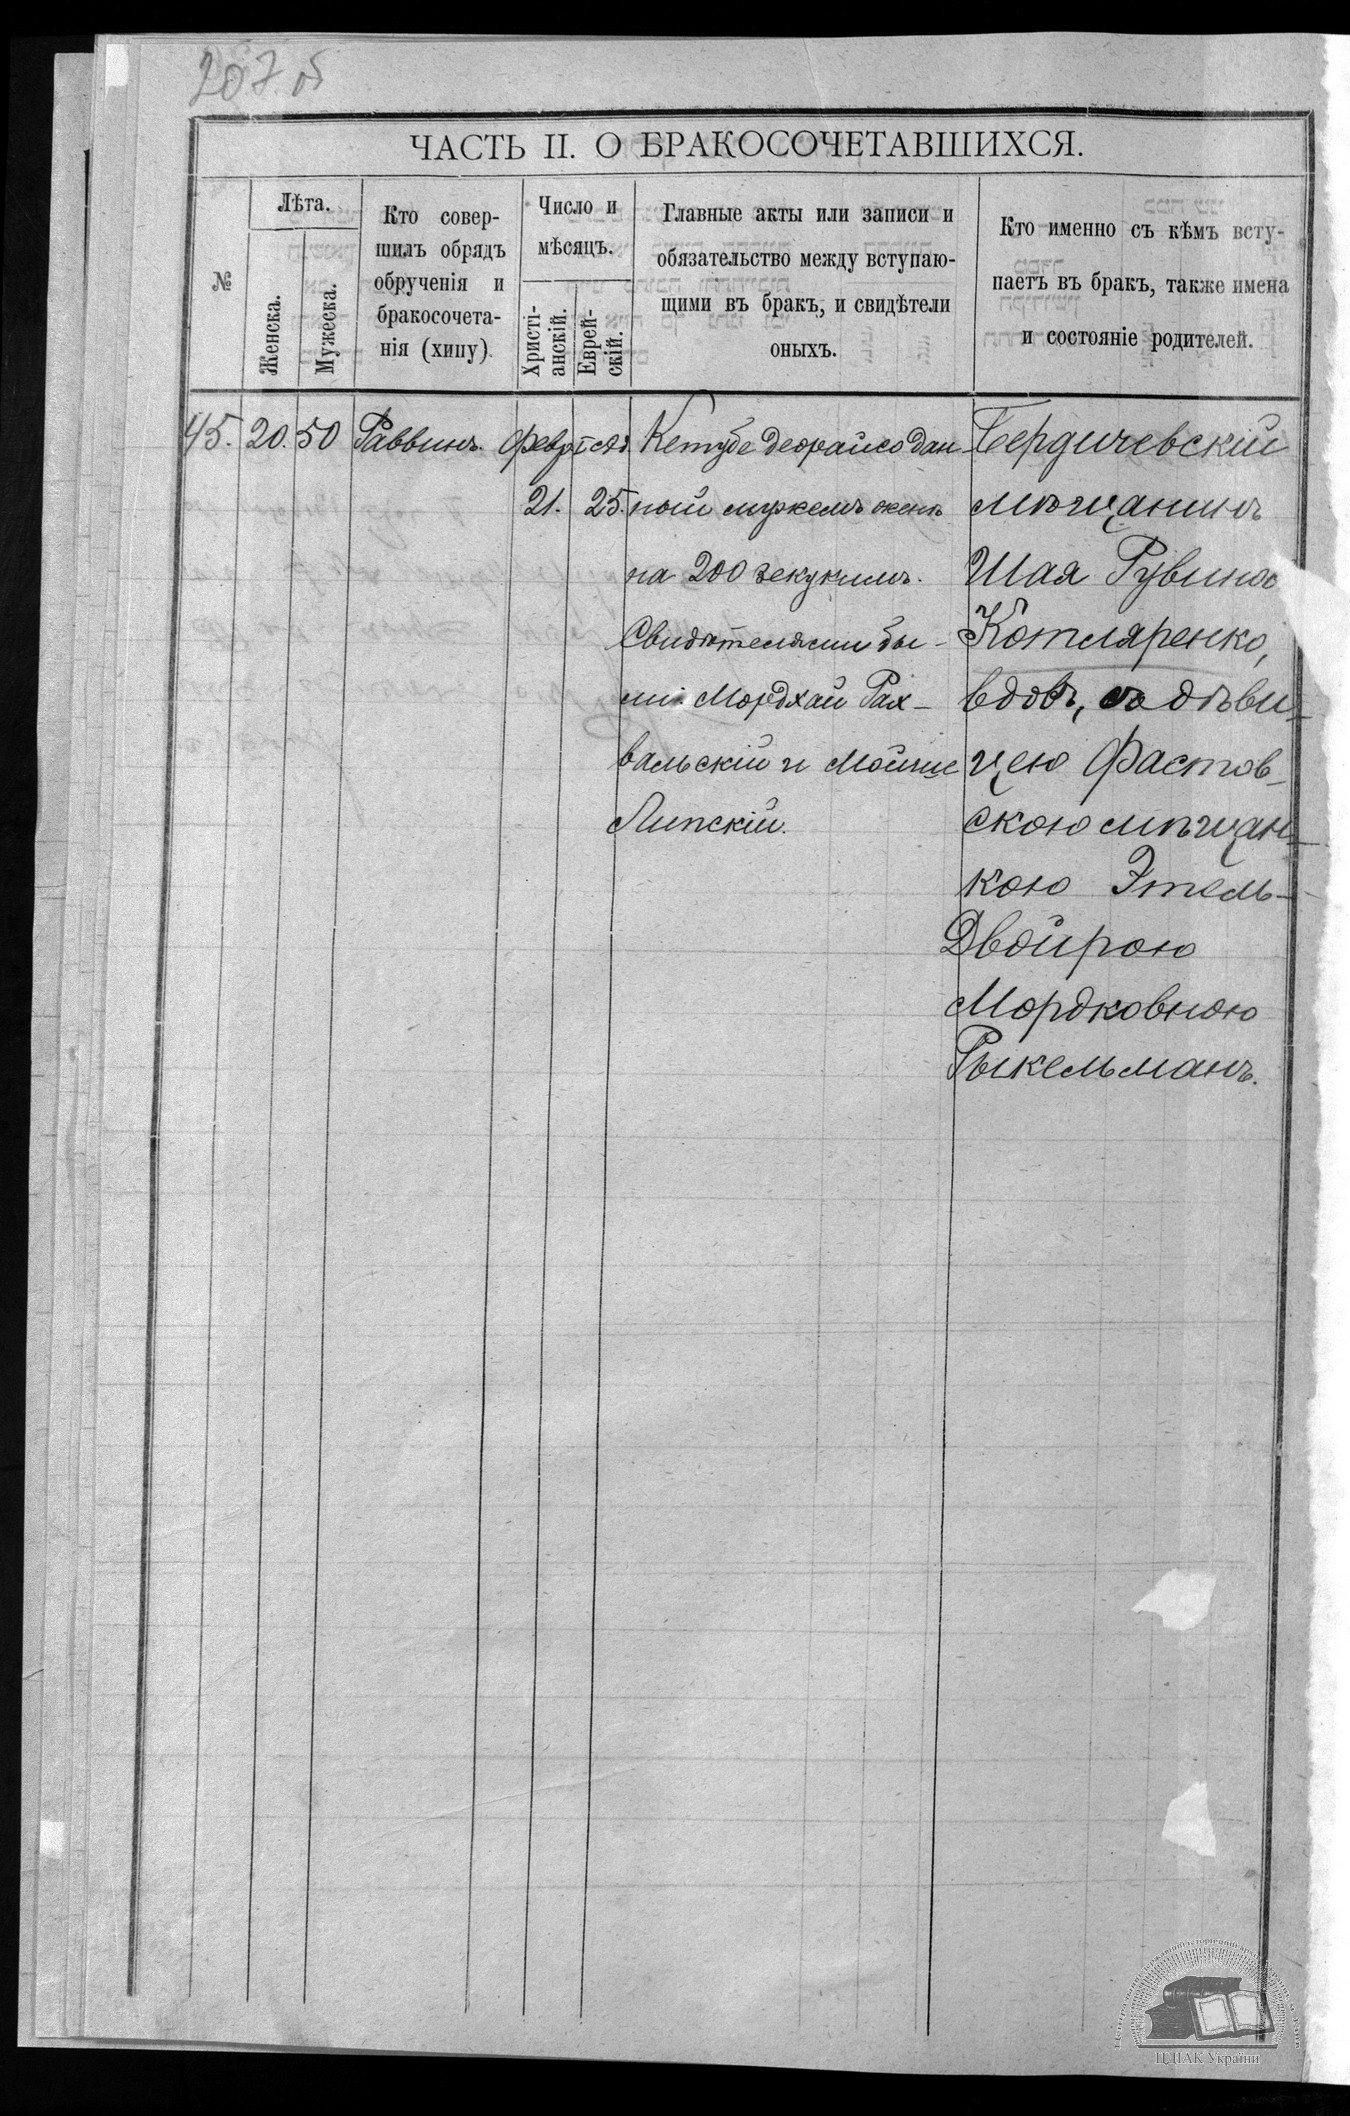 207 об
ЧАСТЬ II. О БРАКОСОЧЕТАВШИХСЯ.
№
Лѣта.
Женска.
Мужеска.
Кто совер-
шилъ обрядъ
обрученія и
бракосочета-
нія (хупу)
Число и
мѣсяцъ.
Христі-
анскій.
Еврей-
скій.
Главные акты или записи и
обязательство между вступаю-
щими въ бракъ, и свидѣтели
оныхъ.
Кто именно съ кѣмъ всту-
паетъ въ бракъ, также имена
и состояніе родителей.
45.
20.
50
Раввинъ.
Февр
21.
25.
Кетубе деорайсо дан-
ный мужемъ женѣ
на 200 зекукимъ.
Свидѣтелями бы-
ли: Мордхай Рах-
вальскій и Мойше
Липскій.
Бердичевскій
мѣщанинъ
Шая Рувинов
Котляренко,
вдовъ, съ дѣви-
цею Фастов-
скою мѣщан-
кою Этель-
Двойрою
Мордковною
Рыкельманъ.
ЦДІАК України